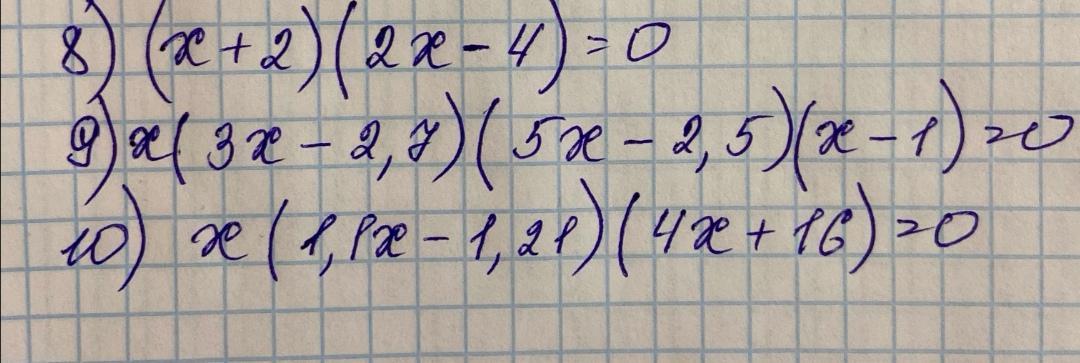 8) (x+2)(2x-4)=0
9) x(3x-2,7)(5x-2,5)(x-1)=0
10) x(1,1x-1,21)(4x+16)=0